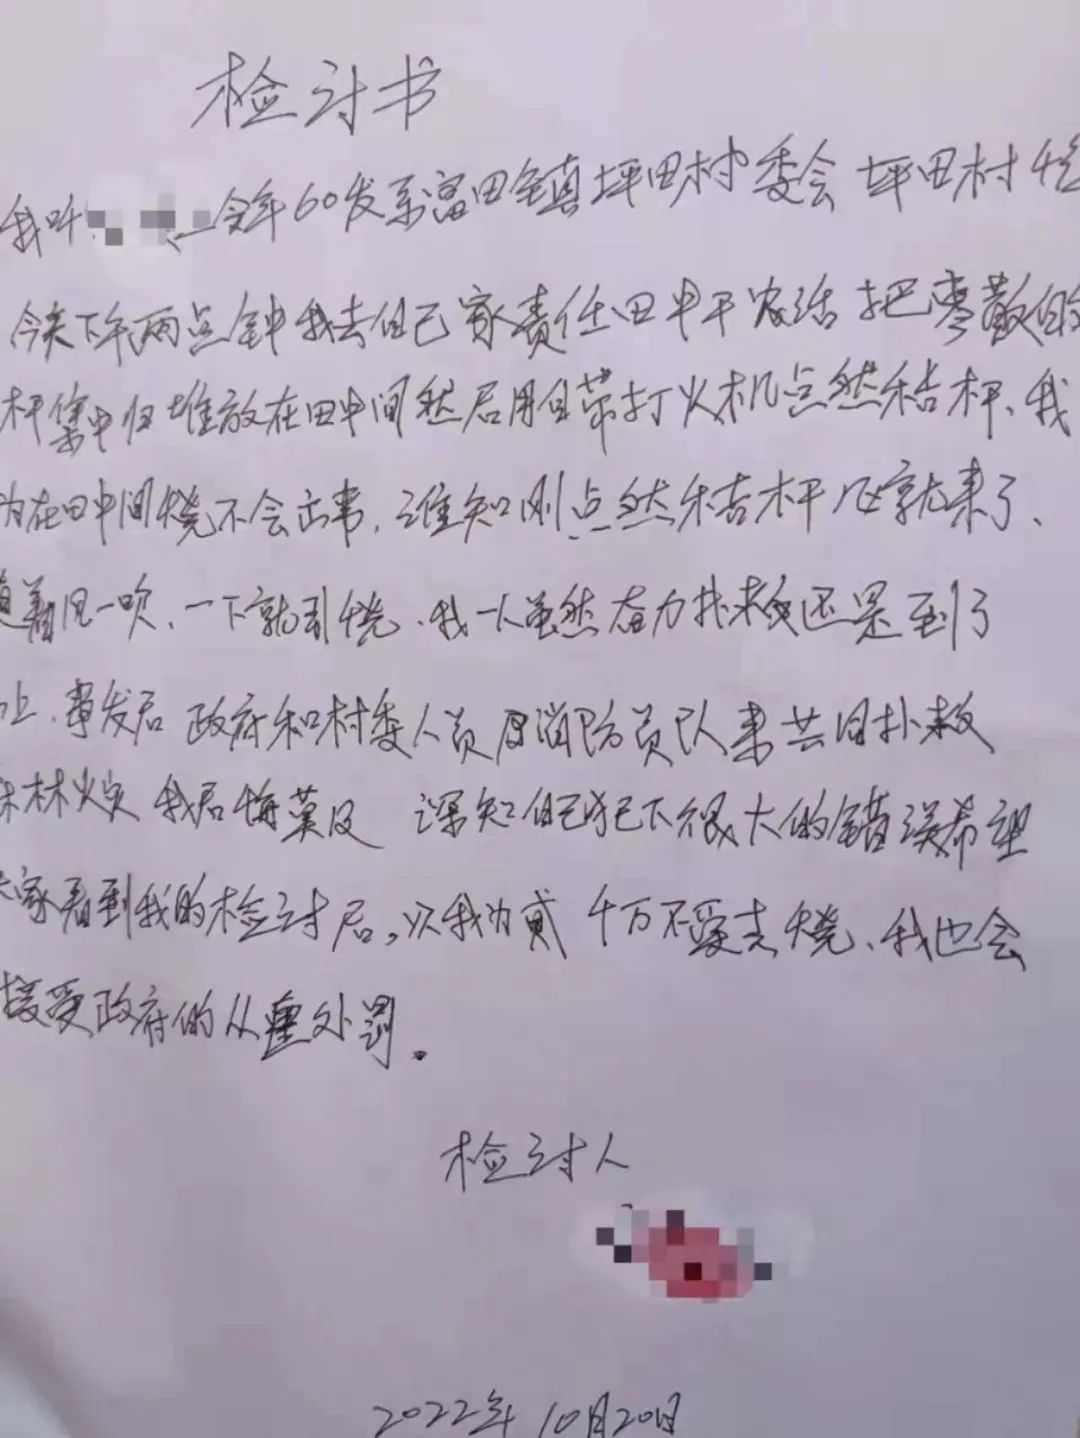 检讨书
我叫 今年60岁系富田镇坪田村委会坪田村
今天下午两点钟我去自己家责任田中干农活把零散的
杆集中归堆放在田中间然后用自带打火机点然秸杆、我
为在田中间烧不会出事,谁知刚点然秸杆风就来了、
着风一吹、一下就引烧、我一人虽然奋力扑救还是到了
上、事发后政府和村委人员及消防员队来共同扑救
森林火灾 我后悔莫及 深知自己犯下很大的错误希望
大家看到我的检讨后,以我为戒 千万不要去烧、我也会
接受政府的从重处罚。
检讨人
2022年10月20日